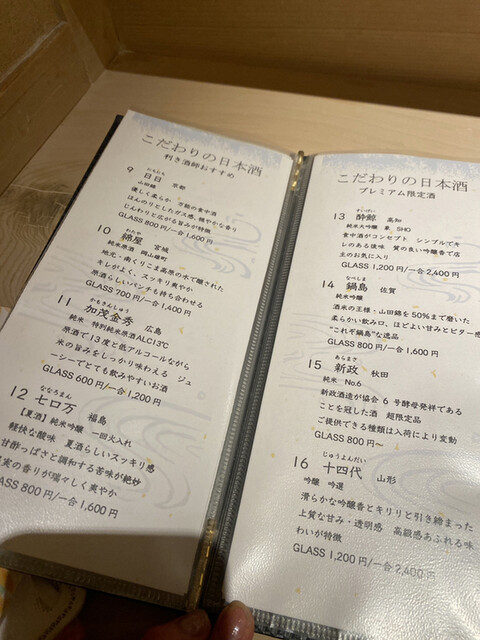 こだわりの日本酒
利き酒師おすすめ
にちにち
9 日日 京都
山田錦
優しく柔らか 万能の食中酒
ほんのりとしたガス感、軽やかな香り
じんわりと広がる旨みが特徴
GLASS 800円/一合 1,600円
わたや
10 綿屋 宮城
純米原酒 岡山雄町
地元・南くりこま高原の水で醸された
キレがよく、スッキリ爽やか
原酒らしいパンチも持ち合わせる
GLASS 700円/一合 1,400円
かもきんしゅう
11 加茂金秀 広島
純米 特別純米原酒ALC13℃
原酒で13度と低アルコールながら
米の旨みをしっかり味わえる ジュ
ーシーてとても飲みやすいお酒
GLASS 600円/一合 1,200円
ななろうまん
12 七ロ万 福島
【夏酒】純米吟醸 一回火入れ
軽快な酸味 夏酒らしいスッキリ感
甘酢っぱさと調和する苦味が絶妙
果実の香りが瑞々しく爽やか
GLASS 800円/一合 1,600円
こだわりの日本酒
プレミアム限定酒
すいげい
13 酔鯨 高知
純米大吟醸 象 SHO
食中酒がコンセプト シンプルでキ
レのある後味 質の良い吟醸香で店
主のお気に入り
GLASS 1,200円/一合 2,400円
なべしま
14 鍋島 佐賀
純米吟醸
酒米の王様・山田錦を50%まで磨いた
柔らかい飲み口、ほどよい甘みとビター感
“これぞ鍋島”な逸品
GLASS 800円/一合 1,600円
あらまさ
15 新政 秋田
純米 No.6
新政酒造が協会 6 号酵母発祥である
ことを冠した酒 超限定品
ご提供できる種類は入荷により変動
GLASS 800円～
じゅうよんだい
16 十四代 山形
吟醸 吟選
滑らかな吟醸香とキリリと引き締まった
上質な甘み・透明感 高級感あふれる味
わいが特徴
GLASS 1,200円/一合 2,400円